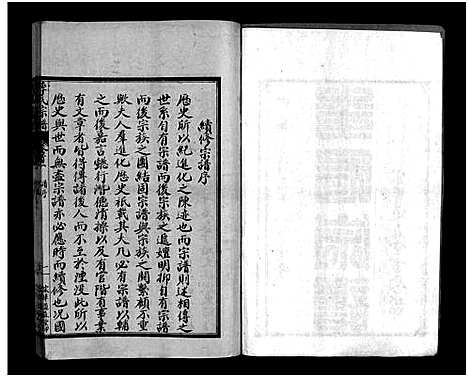 續修宗譜序
歷史所以紀進化之陳迹也而宗譜則述相傳之
世系自有宗譜而後宗族之遠邇明仰自有宗譜
而後宗族之團結固宗譜與宗族之關繫顧不重
歟大人羣進化歷史祇載其大凡必有宗譜以輔
之而後嘉言懿行潛德隱操以及有官階有事業
有文章者皆得傳諸後人而不至於湮沒此所以
歷史與世而無盡宗譜亦必應時而續修也况國
氏宗譜